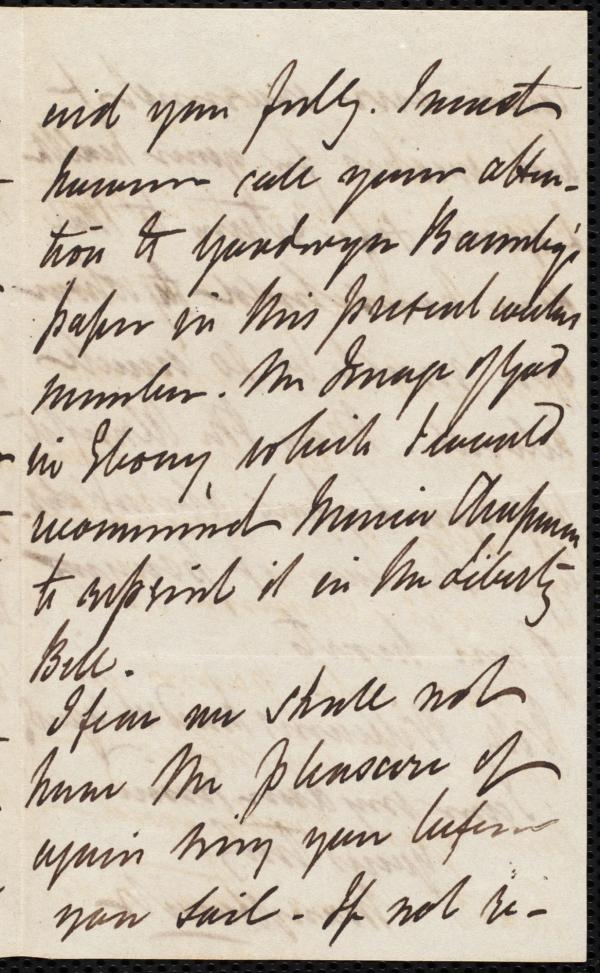 aid you fully. I must
however call your atten-
tion to Goodwyn Barmby's
paper in this present weeks
number. The Image of God
in Ebony, which I would
recommend Maria Chapman
to reprint it in the Liberty
Bell.
I fear we shall not
have the pleasure of
again seeing you before
you sail - If not re-